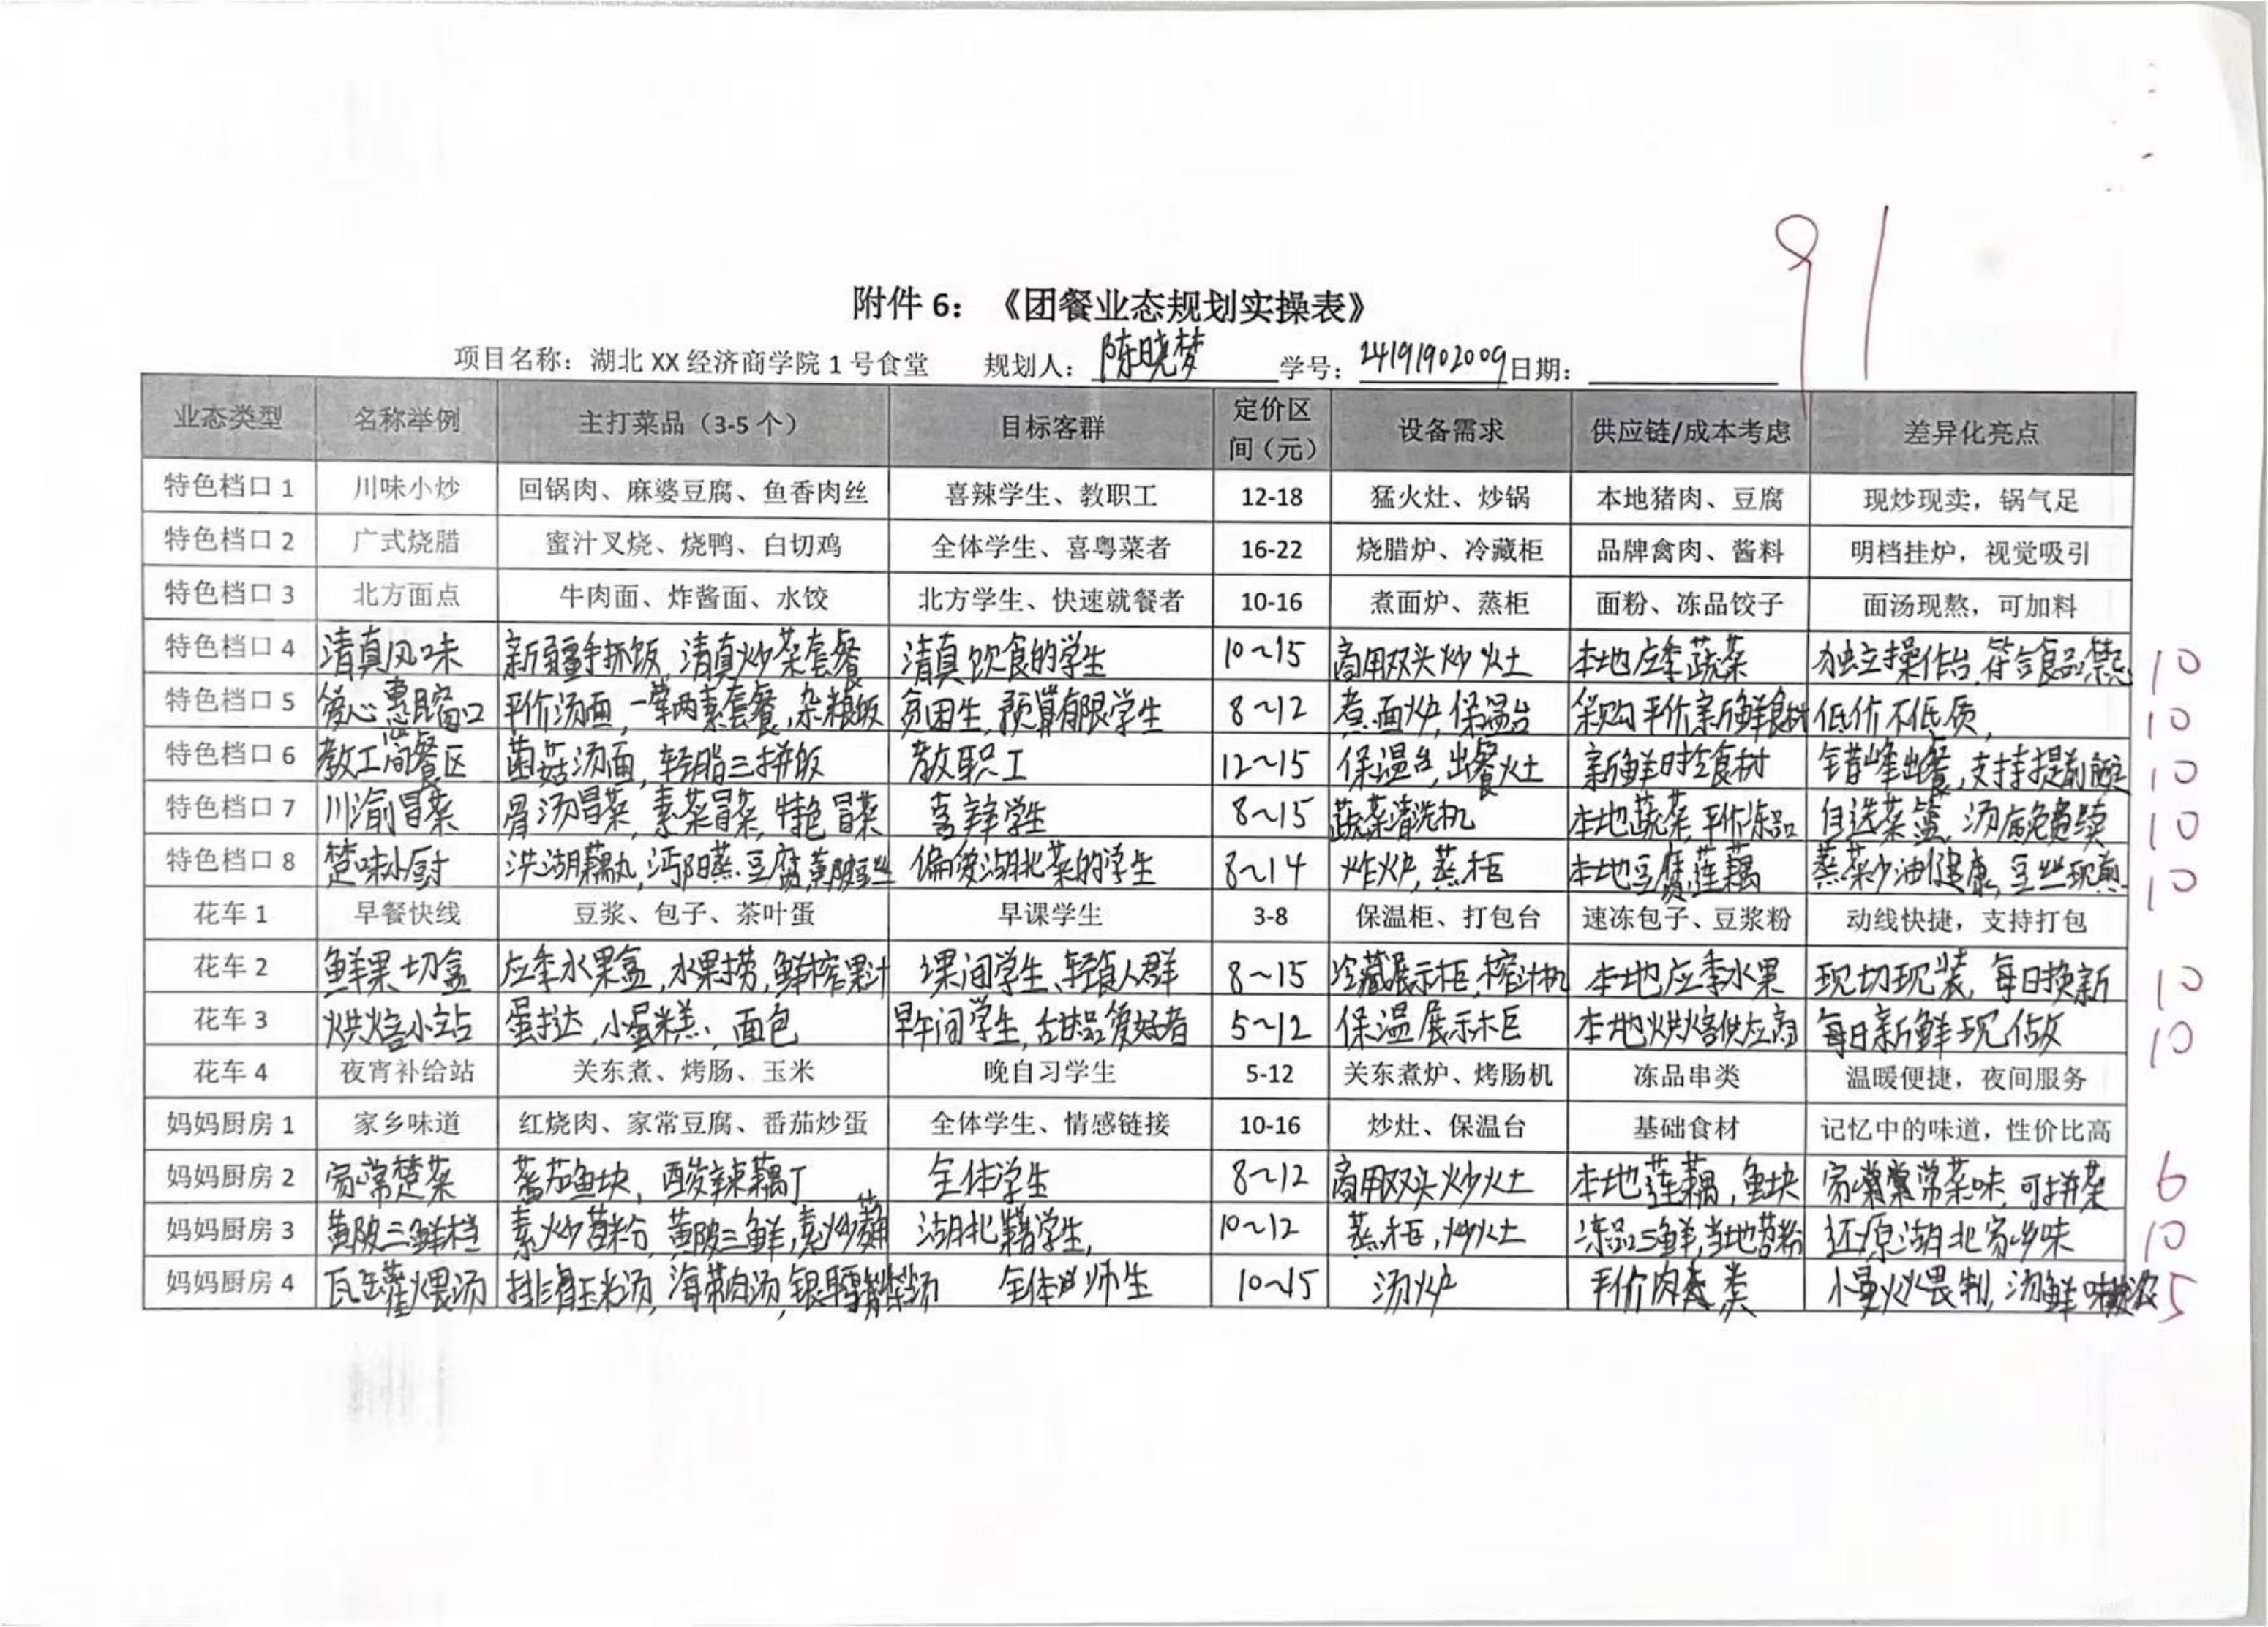 91
附件 6：《团餐业态规划实操表》
项目名称：湖北 XX 经济商学院 1 号食堂 规划人：陈晓梦 学号：24191902009 日期：
业态类型 名称举例 主打菜品（3-5 个） 目标客群 定价区间（元） 设备需求 供应链/成本考虑 差异化亮点
特色档口 1 川味小炒 回锅肉、麻婆豆腐、鱼香肉丝 喜辣学生、教职工 12-18 猛火灶、炒锅 本地猪肉、豆腐 现炒现卖，锅气足
特色档口 2 广式烧腊 蜜汁叉烧、烧鸭、白切鸡 全体学生、喜粤菜者 16-22 烧腊炉、冷藏柜 品牌禽肉、酱料 明档挂炉，视觉吸引
特色档口 3 北方面点 牛肉面、炸酱面、水饺 北方学生、快速就餐者 10-16 煮面炉、蒸柜 面粉、冻品饺子 面汤现熬，可加料
特色档口 4 清真风味 新疆手抓饭，清真炒菜套餐 清真饮食的学生 10~15 商用双头炒灶 本地应季蔬菜 独立操作台，符合食品禁忌 10
特色档口 5 爱心惠民窗口 平价汤面，一荤两素套餐，杂粮饭 贫困生，预算有限学生 8~12 煮面炉，保温台 采购平价新鲜食材 低价不低质， 10
特色档口 6 教工间餐区 菌菇汤面，轻脂三拼饭 教职工 12~15 保温台，出餐灶 新鲜时控食材 错峰出餐，支持提前 10
特色档口 7 川渝冒菜 骨汤冒菜，素菜冒菜，特色冒菜 喜辣学生 8~15 蔬菜清洗机 本地蔬菜，平价冻品 自选菜篮，汤底免费续 10
特色档口 8 楚味小厨 洪湖藕丸，沔阳蒸豆腐，黄陂豆丝 偏爱湖北菜的学生 8~14 炸炉，蒸柜 本地豆腐，莲藕 蒸菜少油健康，豆丝现煎 10
花车 1 早餐快线 豆浆、包子、茶叶蛋 早课学生 3-8 保温柜、打包台 速冻包子、豆浆粉 动线快捷，支持打包
花车 2 鲜果切盒 应季水果盒，水果捞，鲜榨果汁 课间学生、轻食人群 8~15 冷藏展示柜，榨汁机 本地应季水果 现切现装，每日换新 10
花车 3 烘焙小站 蛋挞，小蛋糕、面包 早午间学生，甜品爱好者 5~12 保温展示柜 本地烘焙供应商 每日新鲜现做 10
花车 4 夜宵补给站 关东煮、烤肠、玉米 晚自习学生 5-12 关东煮炉、烤肠机 冻品串类 温暖便捷，夜间服务
妈妈厨房 1 家乡味道 红烧肉、家常豆腐、番茄炒蛋 全体学生、情感链接 10-16 炒灶、保温台 基础食材 记忆中的味道，性价比高
妈妈厨房 2 家常楚菜 蕃茄鱼块，酸辣藕丁 全体学生 8~12 商用双头炒灶 本地莲藕，鱼块 家常菜味，可拼菜 6
妈妈厨房 3 黄陂三鲜档 素炒苕粉，黄陂三鲜，素炒 湖北籍学生， 10~12 蒸柜，炒灶 冻品三鲜，当地苕粉 还原湖北家乡味 10
妈妈厨房 4 瓦缸煨汤 排骨玉米汤，海带肉汤，银耳汤 全体师生 10~15 汤炉 平价肉类 小火煨制，汤鲜味浓 5